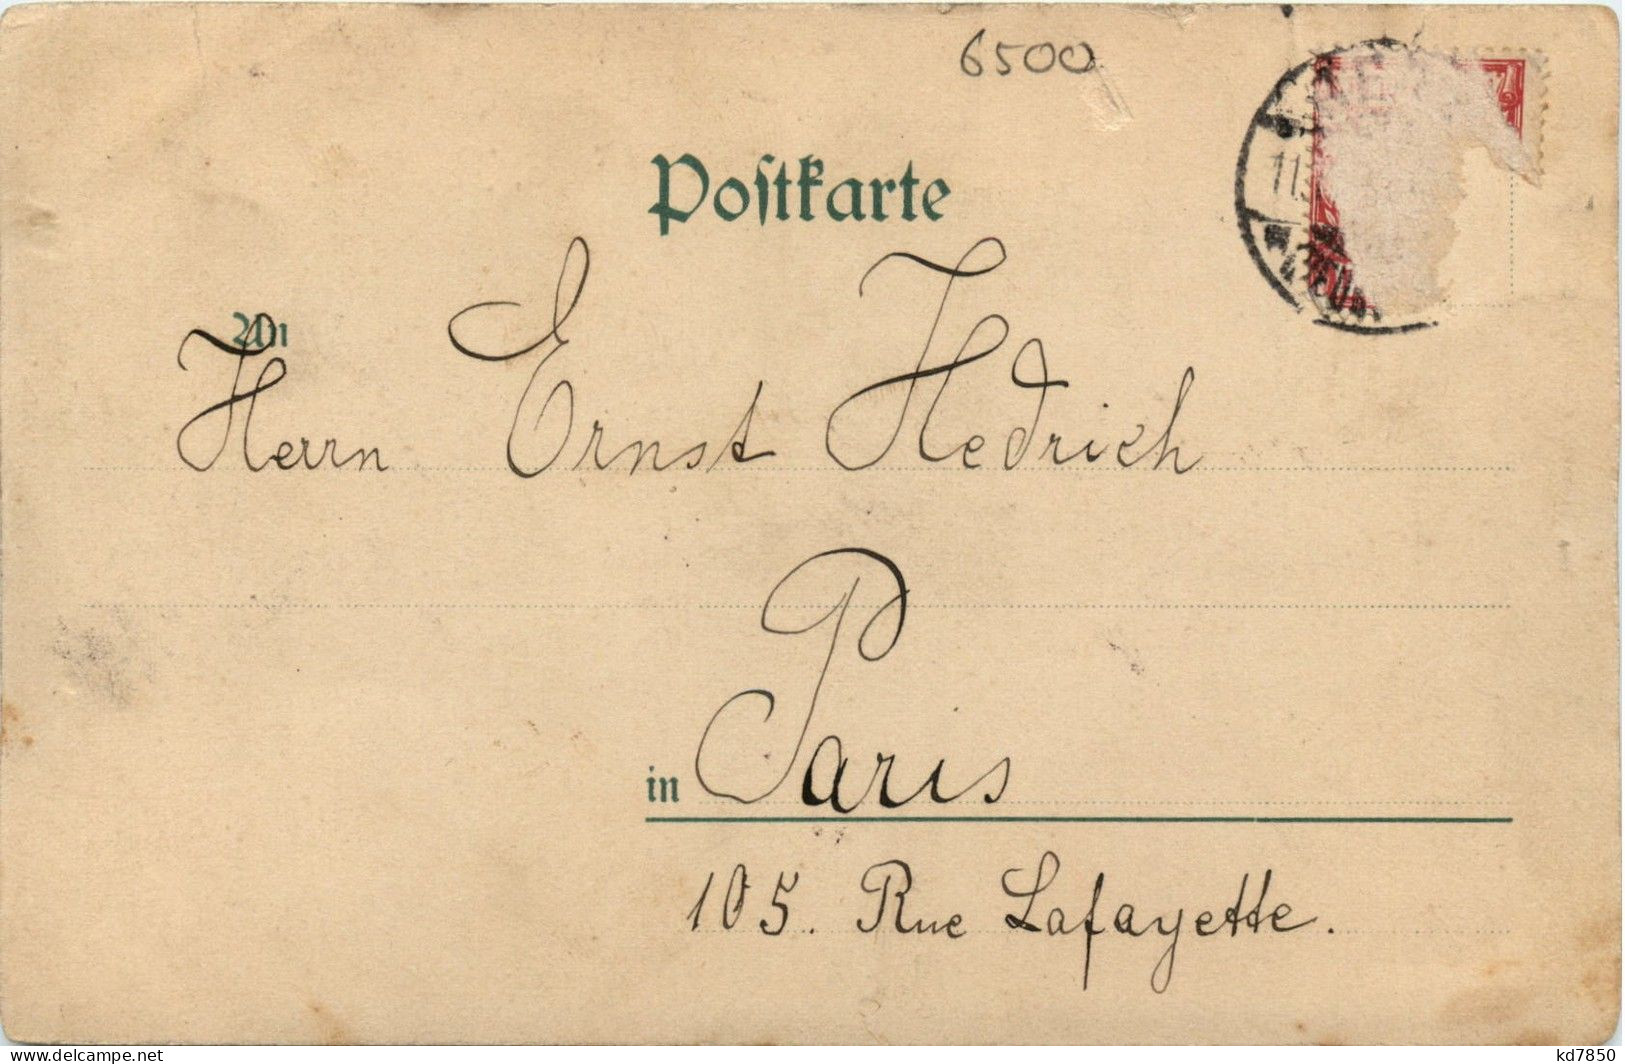 6500
Postkarte
An
Herrn Ernst Hedrich
in Paris
105. Rue Lafayette.
www.delcampe.net
kd7850